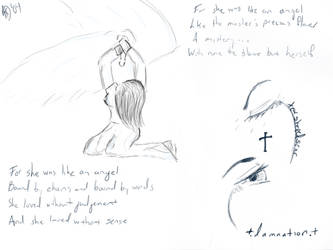 '04
For she was like an angel
Like the master's precious flower
A mystery...
With none to blame but herself
For she was like an angel
Bound by chains and bound by words
She loved without judgement
And she loved without sense
†damnation†